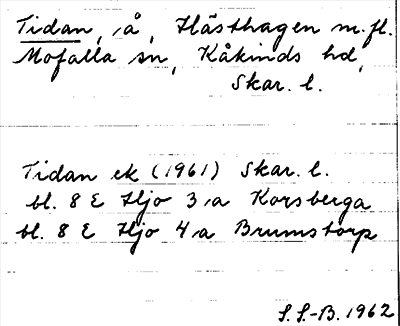 Tidan, å, Hästhagen m.fl.
Mofalla sn, Kåkinds hd,
Skar. l.
Tidan ek (1961) Skar. l.
bl. 8 E Hjo 3 a Korsberga
bl. 8 E Hjo 4 a Brumstorp
S. S.-B. 1962